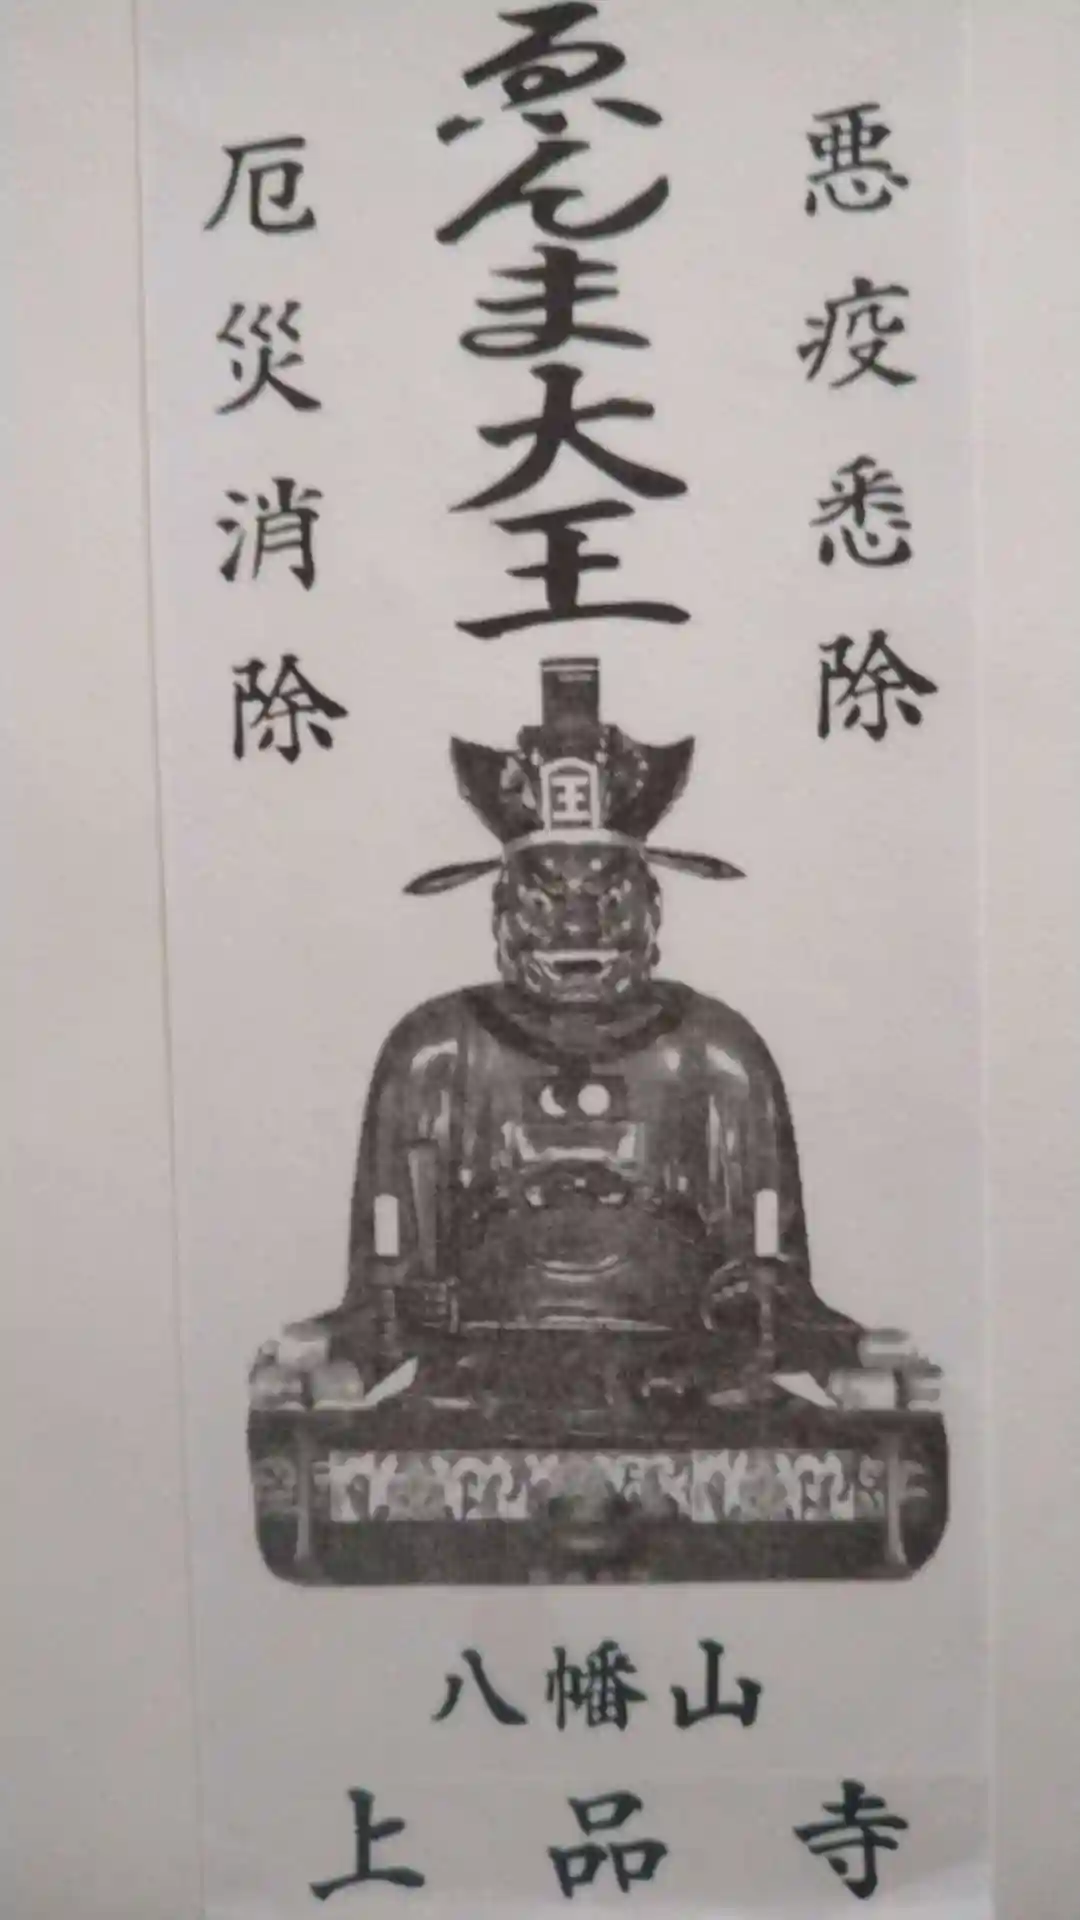 悪疫悉除
ゑんま大王
厄災消除
王
八幡山
上品寺